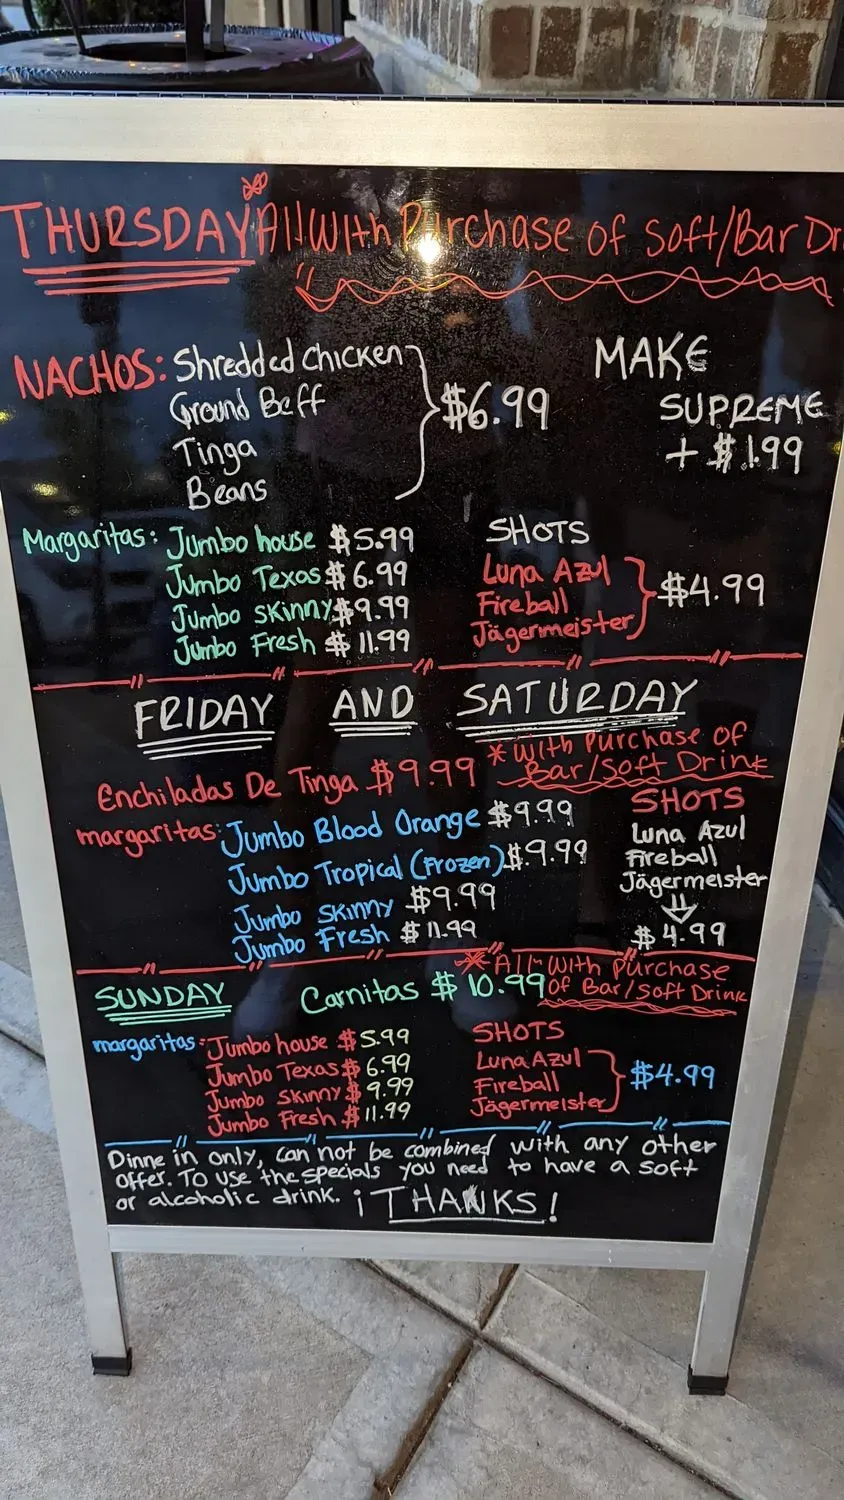 THURSDAY * All With Purchase of Soft/Bar Dr
NACHOS: Shredded chicken
Ground Beff
Tinga
Beans
$6.99
MAKE
SUPREME
+ $1.99
Margaritas: Jumbo house $5.99
Jumbo Texas $6.99
Jumbo Skinny $9.99
Jumbo Fresh $11.99
SHOTS
Luna Azul
Fireball
Jägermeister
$4.99
FRIDAY AND SATURDAY
* With Purchase of
Bar/Soft Drink
Enchiladas De Tinga $9.99
margaritas: Jumbo Blood Orange $9.99
Jumbo Tropical (Frozen) $9.99
Jumbo Skinny $9.99
Jumbo Fresh $11.99
SHOTS
Luna Azul
Fireball
Jägermeister
$4.99
SUNDAY Carnitas $10.99
* All With Purchase
Of Bar/Soft Drink
margaritas: Jumbo house $5.99
Jumbo Texas $6.99
Jumbo Skinny $9.99
Jumbo Fresh $11.99
SHOTS
Luna Azul
Fireball
Jägermeister
$4.99
Dinne in only, can not be combined with any other
offer. To use the specials you need to have a soft
or alcoholic drink. ¡THANKS!